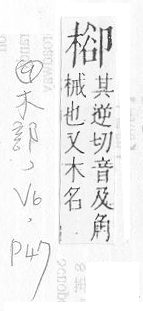 其逆切音及角
械也又木名
木部, V6, P47